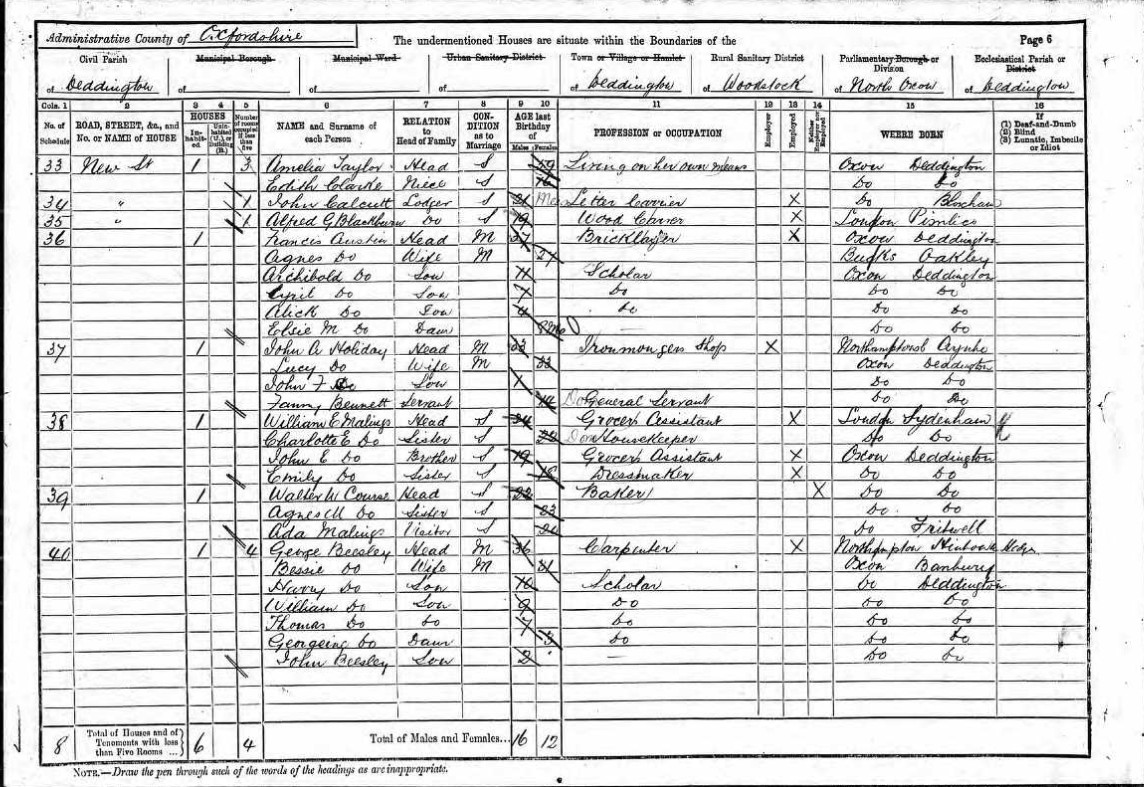 Administrative County of Oxfordshire
The undermentioned Houses are situate within the Boundaries of the
Page 6
Civil Parish
of Deddington
Municipal Borough
of
Municipal Ward
of
Urban Sanitary District
of
Town or Village or Hamlet
of Deddington
Rural Sanitary District
of Woodstock
Parliamentary Borough or Division
of North Oxon
Ecclesiastical Parish or District
of Deddington
Cols. 1 2 3 4 5 6 7 8 9 10 11 12 13 14 15 16
No. of Schedule
ROAD, STREET, &c., and No. or NAME of HOUSE
HOUSES
Inhabited
Uninhabited (U.), or Building (B.)
Number of rooms occupied if less than five
NAME and Surname of each Person
RELATION to Head of Family
CONDITION as to Marriage
AGE last Birthday of
Males Females
PROFESSION or OCCUPATION
Employer
Employed
Neither Employer nor Employed
WHERE BORN
If
(1) Deaf-and-Dumb
(2) Blind
(3) Lunatic, Imbecile or Idiot
33 New St 1 3 Amelia Taylor Head S Living on her own means Oxon Deddington
Edith Clarke Niece S Do Do
34 " 1 John Calcutt Lodger S 21 Letter Carrier X Do Bloxham
35 " 1 Alfred G Blackburn Do S 19 Wood Carver X London Pimlico
36 1 Francis Austin Head M 37 Bricklayer X Oxon Deddington
Agnes Do Wife M 27 Bucks Oakley
Archibold Do Son 11 Scholar Oxon Deddington
Cyril Do Son 7 Do Do Do
Alick Do Son 4 Do Do Do
Elsie M Do Daur 8mo — Do Do
37 1 John A Holiday Head M 33 Ironmongers Shop X Aynho
Lucy Do Wife M 33 Oxon Deddington
John F Do Son Do Do
Fanny Bennett Servant 14 General Servant Do Do
38 1 William E Malings Head S 24 Grocers Assistant X London Sydenham
Charlotte E Do Sister S Housekeeper Do Do
John E Do Brother S 19 Grocers Assistant X Oxon Deddington
Emily Do Sister S Dressmaker X Do Do
39 1 Walter W Course Head S 22 Baker X Do Do
Agnes M Do Sister S 23 Do Do
Ada Malings Visitor S 24 Do Fritwell
40 1 4 George Beesley Head M 36 Carpenter X Northampton
Bessie Do Wife M 31 Oxon Banbury
Harry Do Son 10 Scholar Do Deddington
William Do Son 9 Do Do Do
Thomas Do Do 7 Do Do Do
Do Daur Do Do Do
John Beesley Son 2 — Do Do
8 Total of Houses and of Tenements with less than Five Rooms ... 6 4 Total of Males and Females... 16 12
NOTE.—Draw the pen through such of the words of the headings as are inappropriate.